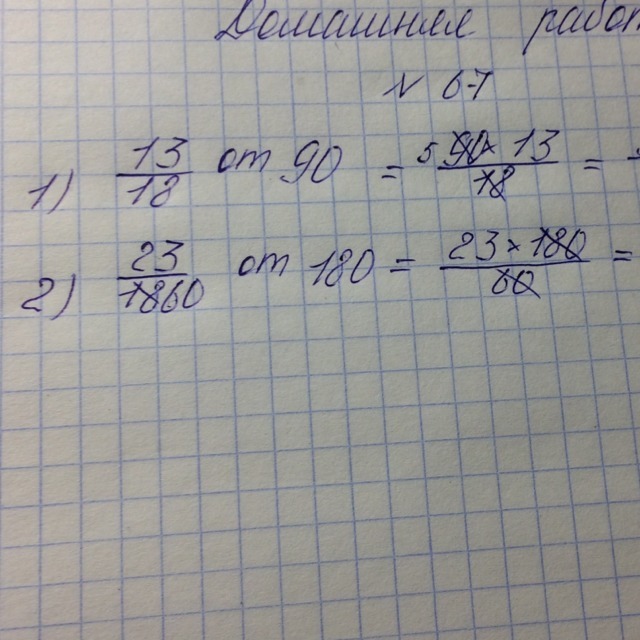 Домашняя работ
№ 67
1) 13/18 от 90 = 5 90 × 13/18 =
2) 23/1860 от 180 = 23 × 180/60 =